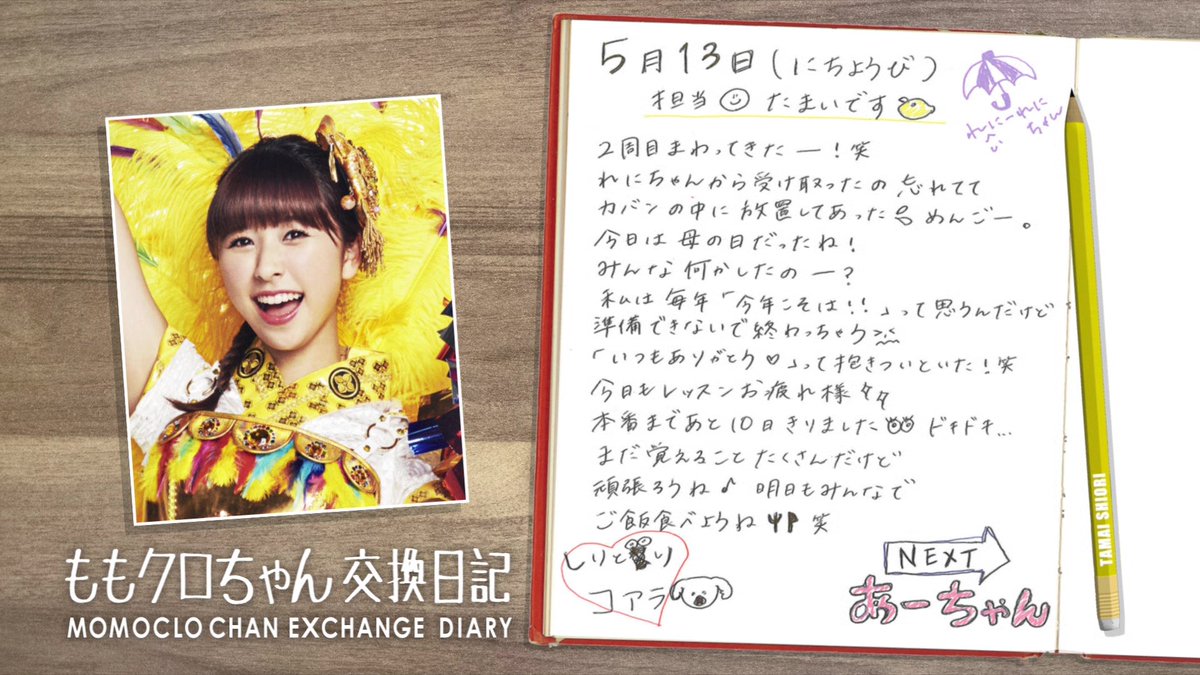 5月13日(にちようび)
担当 たまいです
れにーれに
ちゃん
2周目まわってきたー!笑
れにちゃんから受け取ったの忘れてて
カバンの中に放置してあった めんごー。
今日は母の日だったね!
みんな何かしたのー?
私は毎年「今年こそは!!」って思うんだけど
準備できないで終わっちゃう
「いつもありがとう♡」って抱きついといた!笑
今日もレッスンお疲れ様
本番まであと10日きりました ドキドキ…
まだ覚えることたくさんだけど
頑張ろうね♪ 明日もみんなで
ご飯食べようね 笑
しりとり
コアラ
NEXT
あーちゃん
TAMAI SHIORI
ももクロちゃん交換日記
MOMOCLO CHAN EXCHANGE DIARY